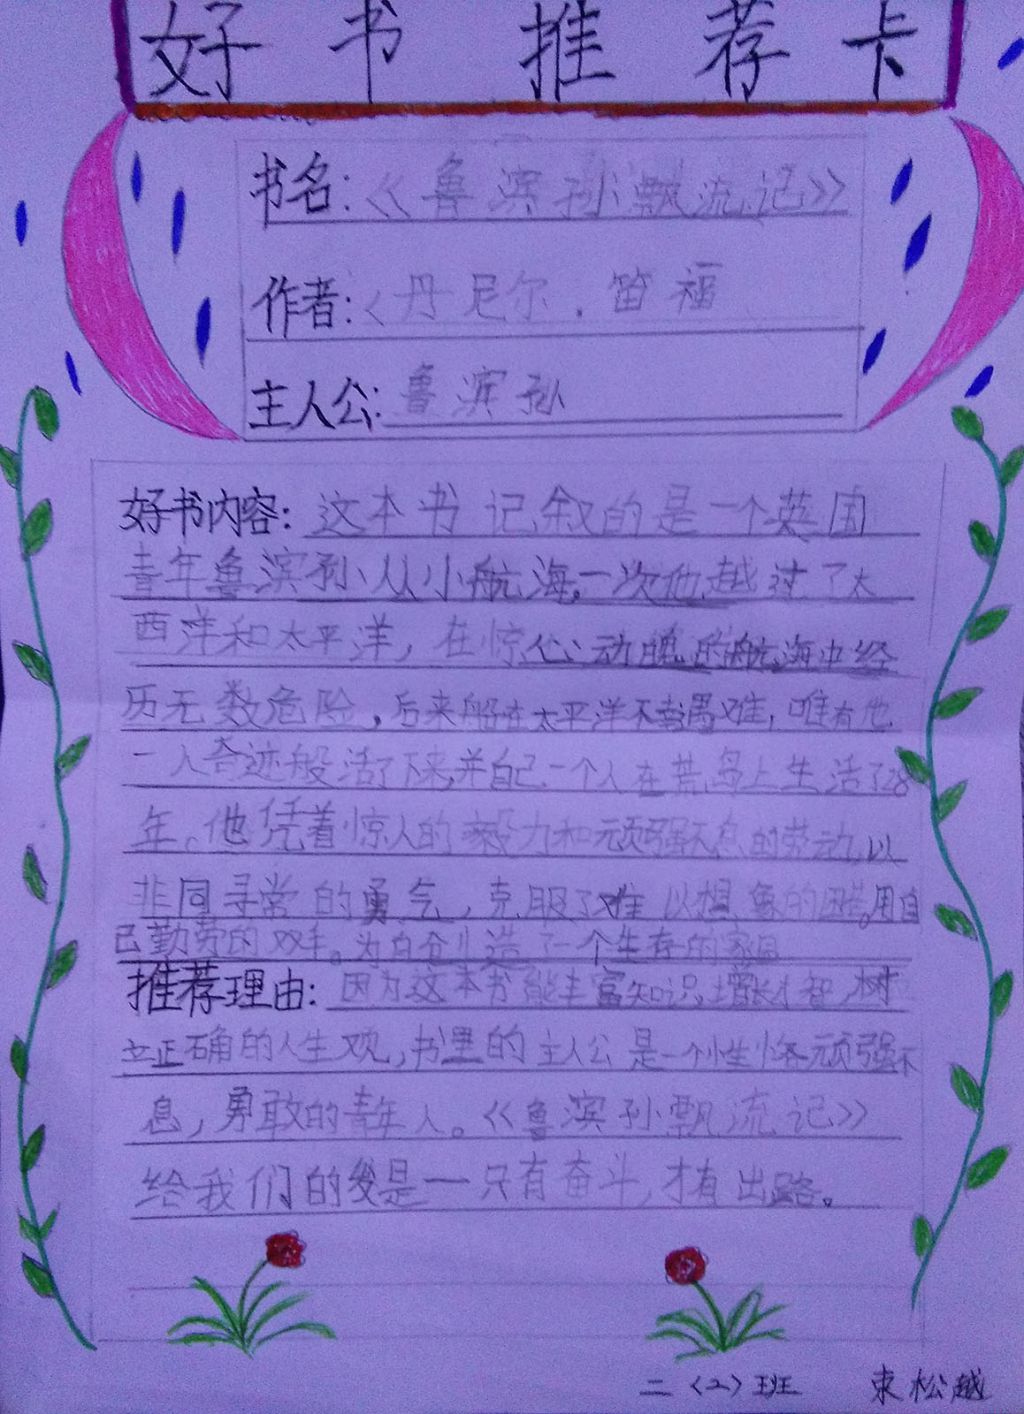 好书推荐卡
书名:《鲁滨孙飘流记》
作者:〈丹尼尔.笛福
主人公:鲁滨孙
好书内容:这本书记叙的是一个英国
青年鲁滨孙从小航海,一次他越过了太
西洋和太平洋,在惊心动魄的航海中经
历无数危险,后来船在太平洋不幸遇难,唯有他
一人奇迹般活了下来,并自己一个人在荒岛上生活了28
年。他凭着惊人的毅力和顽强不息的劳动,以
非同寻常的勇气,克服了难以想象的困苦。用自
己勤劳的双手。为自个儿造了一个生存的家园
推荐理由:因为这本书能丰富知识,增长才智,树
立正确的人生观,书里的主人公是一个性格顽强不
息,勇敢的青年人。《鲁滨孙飘流记》
给我们的是一只有奋斗,才有出路。
二〈2〉班 松越